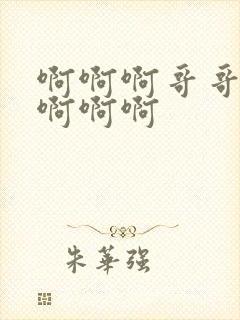 啊啊啊哥哥
啊啊啊
朱華强